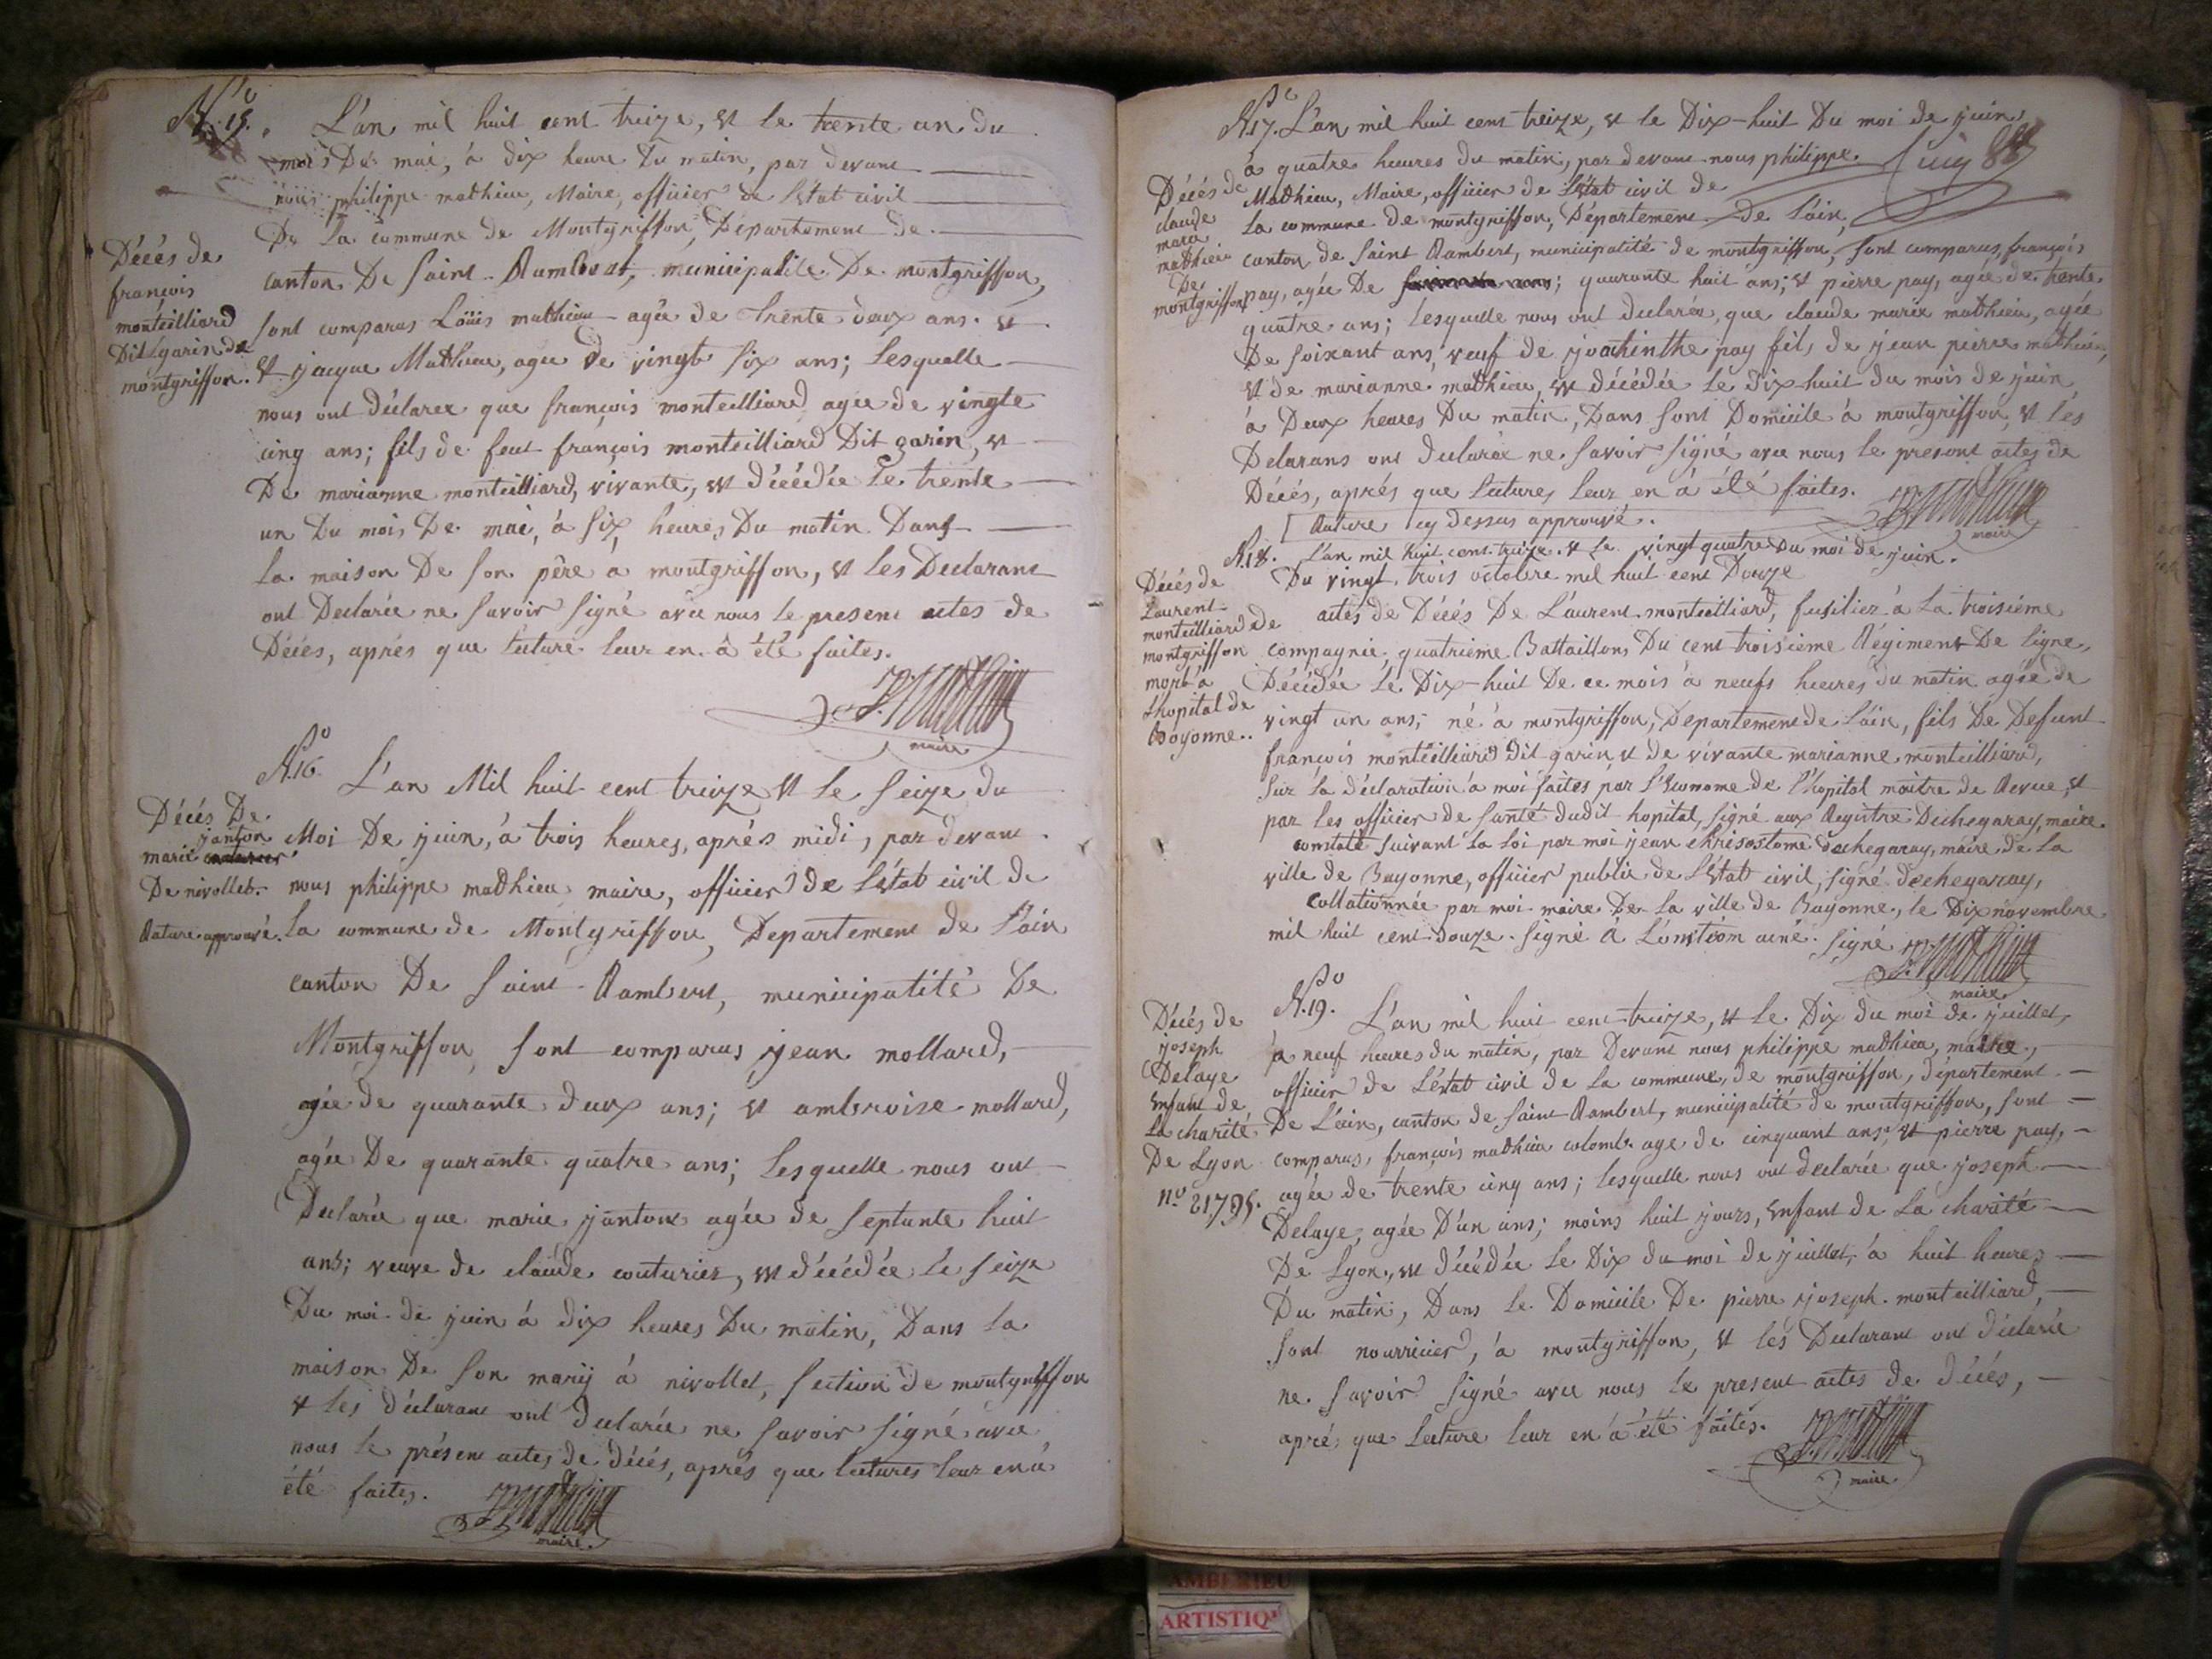 No 15.
L'an mil huit cent treize, et le trente un du
mois De mai, à dix heure du matin, par devant
nous philippe mathieu, Maire, officier de l'état civil
De la commune de Montgriffon, Département de
canton De Saint-Rambert, municipalité De montgriffon,
sont comparus Loüis mathieu agée de trente deux ans. et
et jacque Mathieu, agee de vingt six ans; lesquelle
nous ont déclarée que françois monteilliard agée de vingte
cinq ans; fils de feut françois monteilliard Dit garin, et
De marianne monteilliard, vivante, est décédée le trente
un Du mois De mai, à six heures Du matin Dans
la maison De son père a montgriffon, et les Declarant
ont Declarée ne savoir signé avec nous le present actes de
Décés, aprés que lecture leur en à été faites.
P. Mathieu
maire
Décés de
françois
monteilliard
Dit garin de
montgriffon.
No 16
L'an Mil huit cent treize et le seize du
Moi De juin, à trois heures, aprés midi, par devant
nous philippe mathieu maire, officier de l'état civil de
la commune de Montgriffon, Departement de l'ain
canton De Saint-Rambert, municipalité De
Montgriffon, sont comparus jean mollard,
agée de quarante deux ans; et ambroise mollard,
agée De quarante quatre ans; lesquelle nous ont
Declarée que marie janton agée de septante huit
ans; veuve de claude couturier, est décédée le seize
Du moi de juin à dix heures Du matin, Dans la
maison De son marij à nivollet, section de montgriffon
et les déclarant ont declarée ne savoir signé avec
nous le présent actes de décés, aprés que lectures leur en à
été faites.
P. Mathieu
maire.
Décés De
janton
marie
De nivollet.
Rature approuvé.
No 17. L'an mil huit cent treize, et le Dix-huit Du moi de juin,
à quatre heures du matin, par devant nous philippe
Mathieu, Maire, officier de l'état civil de
la commune de montgriffon, Département de l'ain,
canton de Saint Rambert, municipalité de montgriffon, sont comparus, françois
pay, agée De quarante huit ans; et pierre pay, agée de trente
quatre ans; lesquelle nous ont declarée, que claude marie mathieu, agée
De soixant ans, veuf de joachinthe pay fils de jean pierre mathieu,
et de marianne mathieu, est décédée le dix-huit du mois de juin
à Deux heures Du matin, Dans sont Domicile à montgriffon, et les
Delarans ont declarée ne savoir signé avec nous le present actes de
Décés, aprés que lectures leur en à été faites.
Rature cy dessus approuvé.
P. Mathieu
maire
Décés de
claude
marie
mathieu
De
montgriffon
N.18. L'an mil huit cent treize. et le vingt quatre Du moi de juin.
Du vingt trois octobre mil huit cent Douze
actes de Décés De Laurent monteilliard, fusiliez à la troisiéme
compagnie, quatrieme Battaillons Du cent troisieme Régiment De ligne,
Décédée le Dix-huit De ce mois à neufs heures du matin agée de
vingt un ans; né à montgriffon, Departement de l'ain, fils De Defunt
françois monteilliard Dit garin et de vivante marianne monteilliard,
sur la déclaration à moi faites par l'Econome de l'hopital maitre de Revue, et
par les officier de santé dudit hopital, signé aux Registre Dechegaray, maire
constaté suivant la loi par moi jean chrisostome dechegaray, maire de la
ville de Bayonne, officier public de l'état civil, signé dechegaray,
Collationnée par moi maire De la ville de Bayonne, le Dix novembre
mil huit cent douze. signé signé
P. Mathieu
maire
Décés de
Laurent
monteilliard de
montgriffon
mort à
l'hopital de
Bayonne..
No 19.
L'an mil huit cent treize, et le Dix du moi de juillet,
à neuf heures du matin, par Devant nous philippe mathieu, maire,
officier de l'état civil de la commune, de montgriffon, département
De L'ain, canton de saint Rambert, municipalité de montgriffon, sont
comparus, françois mathieu colomb agé de cinquant ans, et pierre pay,
agée de trente cinq ans; lesquelle nous ont declarée que joseph
Delaye, agée D'un ans; moins huit jours, Enfant de La charité
De Lyon, est décédée le Dix du moi de juillet, à huit heures
Du matin, Dans le Domicile De pierre joseph monteilliard,
sont nourricier, à montgriffon, et les Declarant ont declarée
ne savoir signé avec nous le present actes de décés,
apré que lecture leur en à été faites.
P. Mathieu
maire.
Décés de
joseph
Delaye
Enfant de
La charité
De Lyon
no 21795.
AMBERIEU
ARTISTIQ